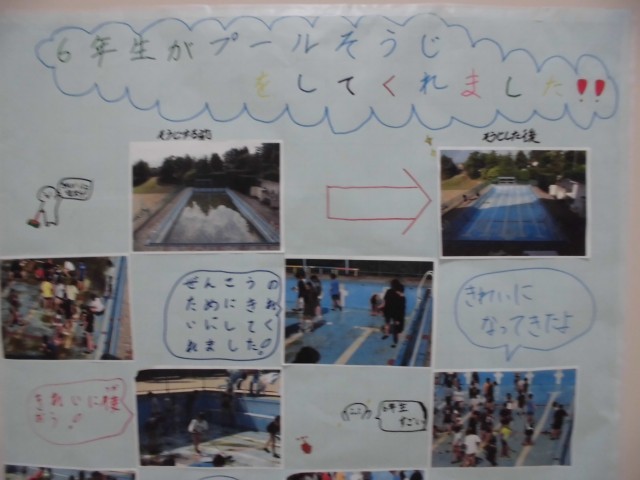 6年生がプールそうじ
をしてくれました!!
そうじする前
そうじした後
ぜんこうの
ためにきれ
いにしてく
れました!
きれいに
なってきたよ
きれいに使
おう!
6年生
すごい